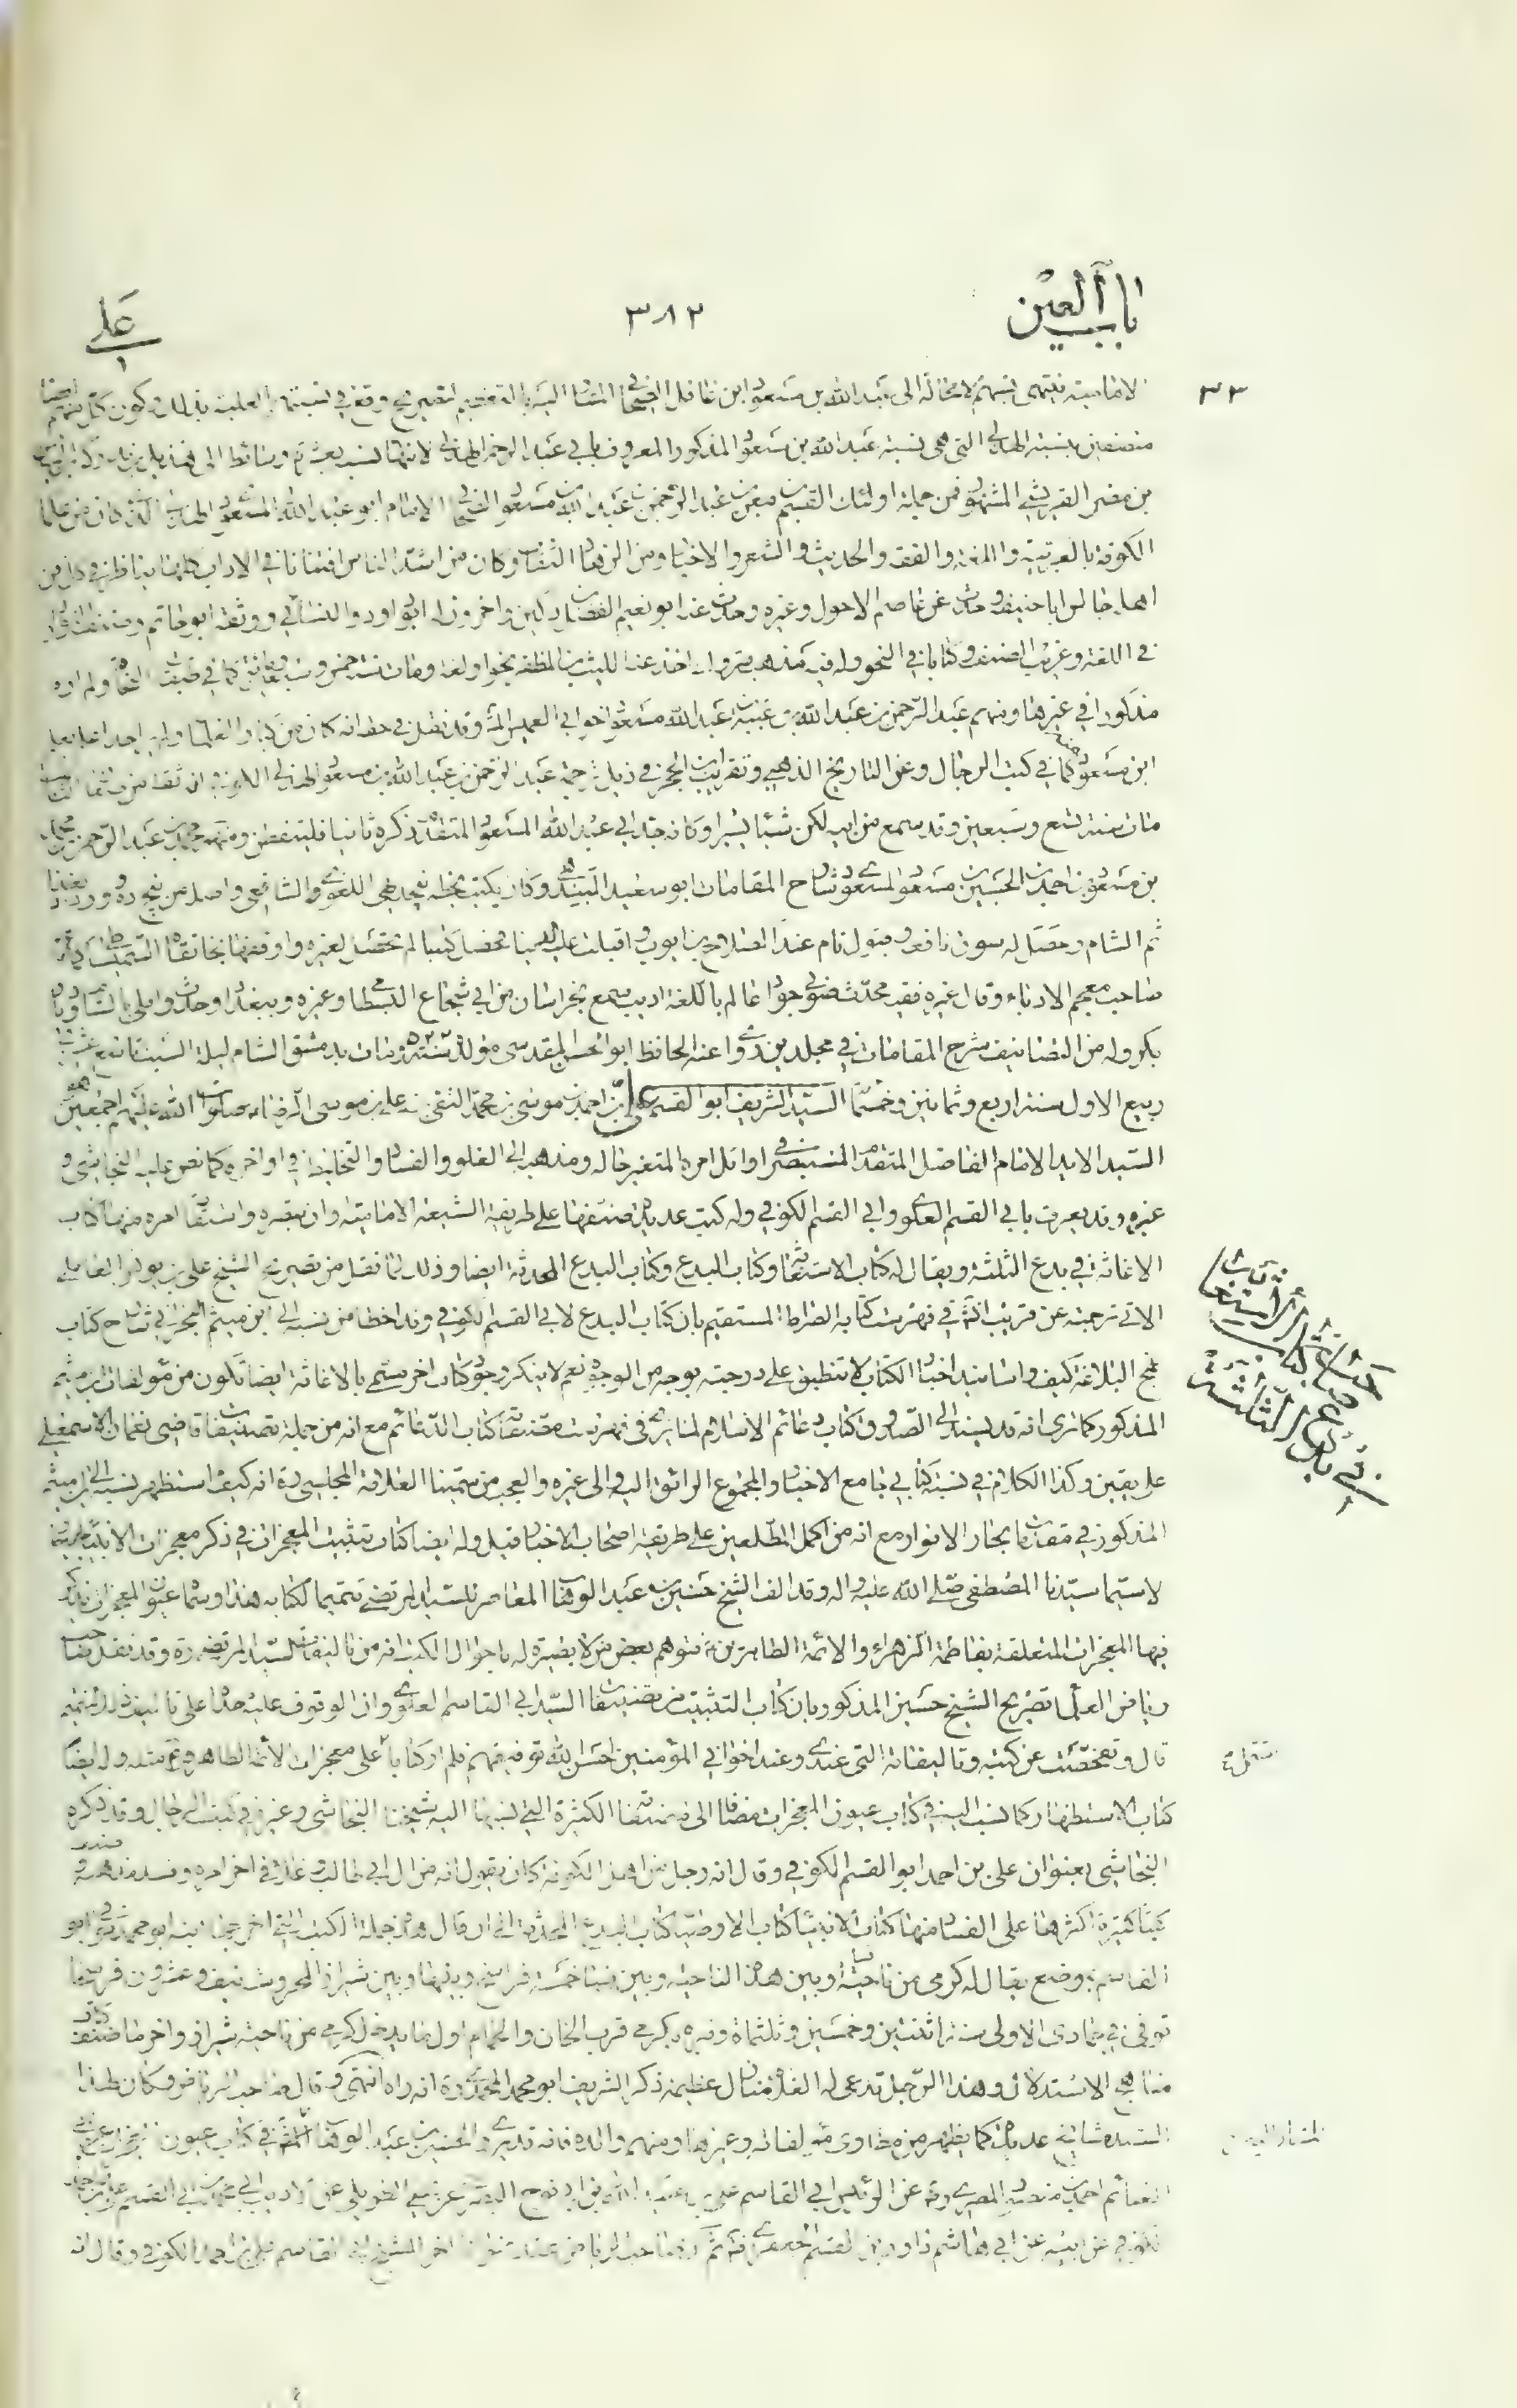 باب العين
٣٨٢
علي
٣٣
الامامية فينتهى نسبهم لا محالة الى عبد الله بن مسعود ابن غافل الصحابي المشار اليه بالتعظيم
بنسبة الهذلي التي هي نسبة عبد الله بن مسعود المذكور المعروف بابي عبد الرحمن الهذلي
بن مضر القريشي المشهور فمن جملة اولئك القسم بن معن بن عبد الرحمن بن عبد الله بن مسعود الامام ابو عبد الله المسعودي الهذلي كان من علماء
الكوفة بالعربية واللغة والفقه والحديث والشعر والاخبار ومن الزهاد الثقات وكان من اشد الناس افتنانا في الاداب كلها
اهله جالس ابا حنيفة وحدث عن عاصم الاحول وغيره وحدث عنه ابو نعيم الفضل بن دكين واخرون له ابو داود والنسائي ووثقه ابو حاتم وصنف النوادر
في اللغة وغريب المصنف وكتابا في النحو وله فيه مذهب متروك اخذ عنه الليث بن المظفر نحوا ولغة ومات سنة خمس وسبعين ومائة كما في طبقات النحاة ولم اره
مذكورا في غيرها ومنهم عبد الرحمن بن عبد الله بن عتبة بن عبد الله بن مسعود اخو ابي العميس وقد نقل في حقه انه كان من كبار العلماء
ابن مسعود كما في كتب الرجال وعن التاريخ الذهبي وتقريب ابن الحجر في ذيل ترجمة عبد الرحمن بن عبد الله بن مسعود الهذلي الكوفي انه ثقة من
مات سنة تسع وسبعين وقد سمع من ابيه لكن شيئا يسيرا وكانه جد ابي عبد الله المسعودي المتقدم ذكره ثانيا فليتفطن ومنهم محمد بن عبد الرحمن بن محمد
بن مسعود بن احمد بن الحسين بن مسعود المسعودي شارح المقامات ابو سعيد البندهي وكان يكتب بخطه البنجديهي اللغوي الشافعي واصله من بنج ده ورد بغداد
ثم الشام وحصل له سوق نافعة وقبول تام عند الصلاح بن ايوب واقبلت عليه الدنيا فحصل كتبا لم تحصل لغيره واوقفها بخانقاه السميساطي
صاحب معجم الادباء وقال غيره فقيه محدث صوفي جوال عالم باللغة اديب سمع بخراسان من ابي شجاع البسطامي وغيره وببغداد وحدث واملى بالشام وديار
بكر وله من التصانيف شرح المقامات في مجلدين روى عنه الحافظ ابو الحسن المقدسي مولده سنة ٥٢٢ ومات بدمشق الشام ليلة السبت تاسع عشرين
ربيع الاول سنة اربع وثمانين وخمسمأة السيد الشريف ابو القسم علي بن احمد بن موسى بن محمد التقي بن علي بن موسى الرضا صلوات الله عليهم اجمعين
السيد الايد الامام الفاضل المتقدم المستبصر في اوائل امره المتغير حاله ومذهبه الى الغلو والفساد والتخليط في اواخره كما نص عليه النجاشي و
غيره وقد يعرف بابي القسم العلوي وابي القسم الكوفي وله كتب عديدة صنفها على طريقة الشيعة الامامية وان تبصره واستقامة امره منها كتاب
الاغاثة في بدع الثلثة ويقال له كتاب الاستغاثة وكتاب البدع وكتاب البدع المحدثة ايضا وذلك لما نقل من تصريح الشيخ علي بن يونس العاملي
الاتي ترجمته عن قريب انشاء الله في فهرست كتابه الصراط المستقيم بان كتاب البدع لابي القسم الكوفي وقد اخطأ من نسبه الى ابن ميثم البحراني شارح كتاب
نهج البلاغة كيف واسانيد اخبار الكتاب لا تنطبق على درجته بوجه من الوجوه نعم لا ينكر وجود كتاب اخر يسمى بالاغاثة ايضا تكون من مؤلفات ابن ميثم
المذكور كما ترى انه قد يسند الى الصدوق كتاب دعائم الاسلام لما يرى في فهرست مصنفاته كتاب الدعائم مع انه من جملة تصنيفات قاضي نعمان الاسمعيلي
على يقين وكذا الكلام في نسبة كتابي جامع الاخبار والمجموع الرائق اليه والى غيره والعجب من سمينا العلامة المجلسي ره انه كيف استظهر نسبته الى ابن ميثم
المذكور في مقدمات بحار الانوار مع انه من اكمل المطلعين على طريقة اصحاب الاخبار قيل وله ايضا كتاب تثبيت المعجزات في ذكر معجزات الانبياء
لا سيما سيدنا المصطفى صلى الله عليه واله وقد الف الشيخ حسين بن عبد الوهاب المعاصر للسيد المرتضى تتميما لكتابه هذا وسماه عيون المعجزات ذكر
فيها المعجزات المتعلقة بفاطمة الزهراء والائمة الطاهرين فتوهم بعض من لا بصيرة له باحوال الكتب انه من تاليفات السيد المرتضى ره وقد نقل صاحب
رياض العلماء تصريح الشيخ حسين المذكور بان كتاب التثبيت من تصنيفات السيد ابي القاسم العلوي وان الوقوف عليه حداه على تاليف ذلك لتتميم
قال وتفحصت عن كتبه وتاليفاته التي عندي وعند اخواني المؤمنين احسن الله توفيقهم فلم ار كتابا على معجزات الائمة الطاهرين وله ايضا
كتاب الاستظهار كما نسب اليه في كتاب عيون المعجزات مضافا الى مصنفاته الكثيرة التي نسبها اليه شيخنا النجاشي وغيره في كتب الرجال وقد ذكره
النجاشي بعنوان علي بن احمد ابو القسم الكوفي وقال انه رجل من اهل الكوفة كان يقول انه من ال ابي طالب وغلا في اخر امره وفسد مذهبه و صنف
كتبا كثيرة اكثرها على الفساد منها كتاب الانبياء كتاب الاوصياء كتاب البدع المحدثة الى ان قال هذه جملة الكتب التي اخرجها ابنه ابو محمد توفي ابو
القاسم بموضع يقال له كرمى من ناحية فسا وبين هذه الناحية وبين فسا خمسة فراسخ وبينها وبين شيراز المحروسة نيف وعشرون فرسخا
توفى في جمادى الاولى سنة اثنتين وخمسين وثلثمأة وقبره بكرمى قرب الخان والحمام اول ما يدخل كرمى من ناحية شيراز واخر ما صنف كتاب
مناهج الاستدلال وهذا الرجل تدعي له الغلاة منازل عظيمة ذكر الشريف ابو محمد المحمدي ره انه راه انتهى وقال صاحب الرياض وكان لهذا
السيد مشايخ عديدة كما يظهر من مطاوي مؤلفاته وغيرها ومنهم والده فانه قد يروي الحسين بن عبد الوهاب في كتاب عيون المعجزات
احمد بن منصور المصري ره عن الرئيس ابي القاسم علي بن عبد الله بن ابي نوح البصري عن يحيى الطويل عن الاديب ابي محمد عن ابي القسم علي بن احمد
الكوفي عن ابيه عن ابي هاشم داود بن القسم الجعفري ثم صاحب الرياض اخر الشيخ ابو القاسم علي بن احمد الكوفي وقال انه
كتاب الاستغاثة
في بدع الثلثة